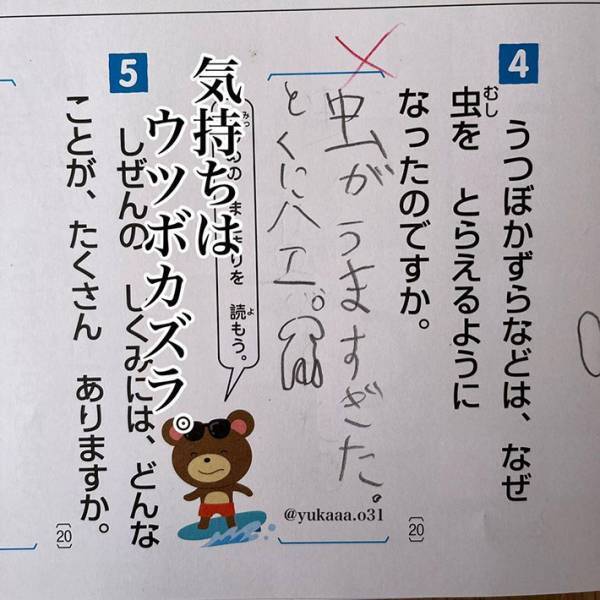 4
うつぼかずらなどは、なぜ
虫を とらえるように
むし
なったのですか。
20
虫がうますぎた。
とくにハエ。
気持ちは
ウツボカズラ。
読もう。
よ
5
しぜんの しくみには、どんな
ことが、たくさん ありますか。
20
@yukaaa.o31